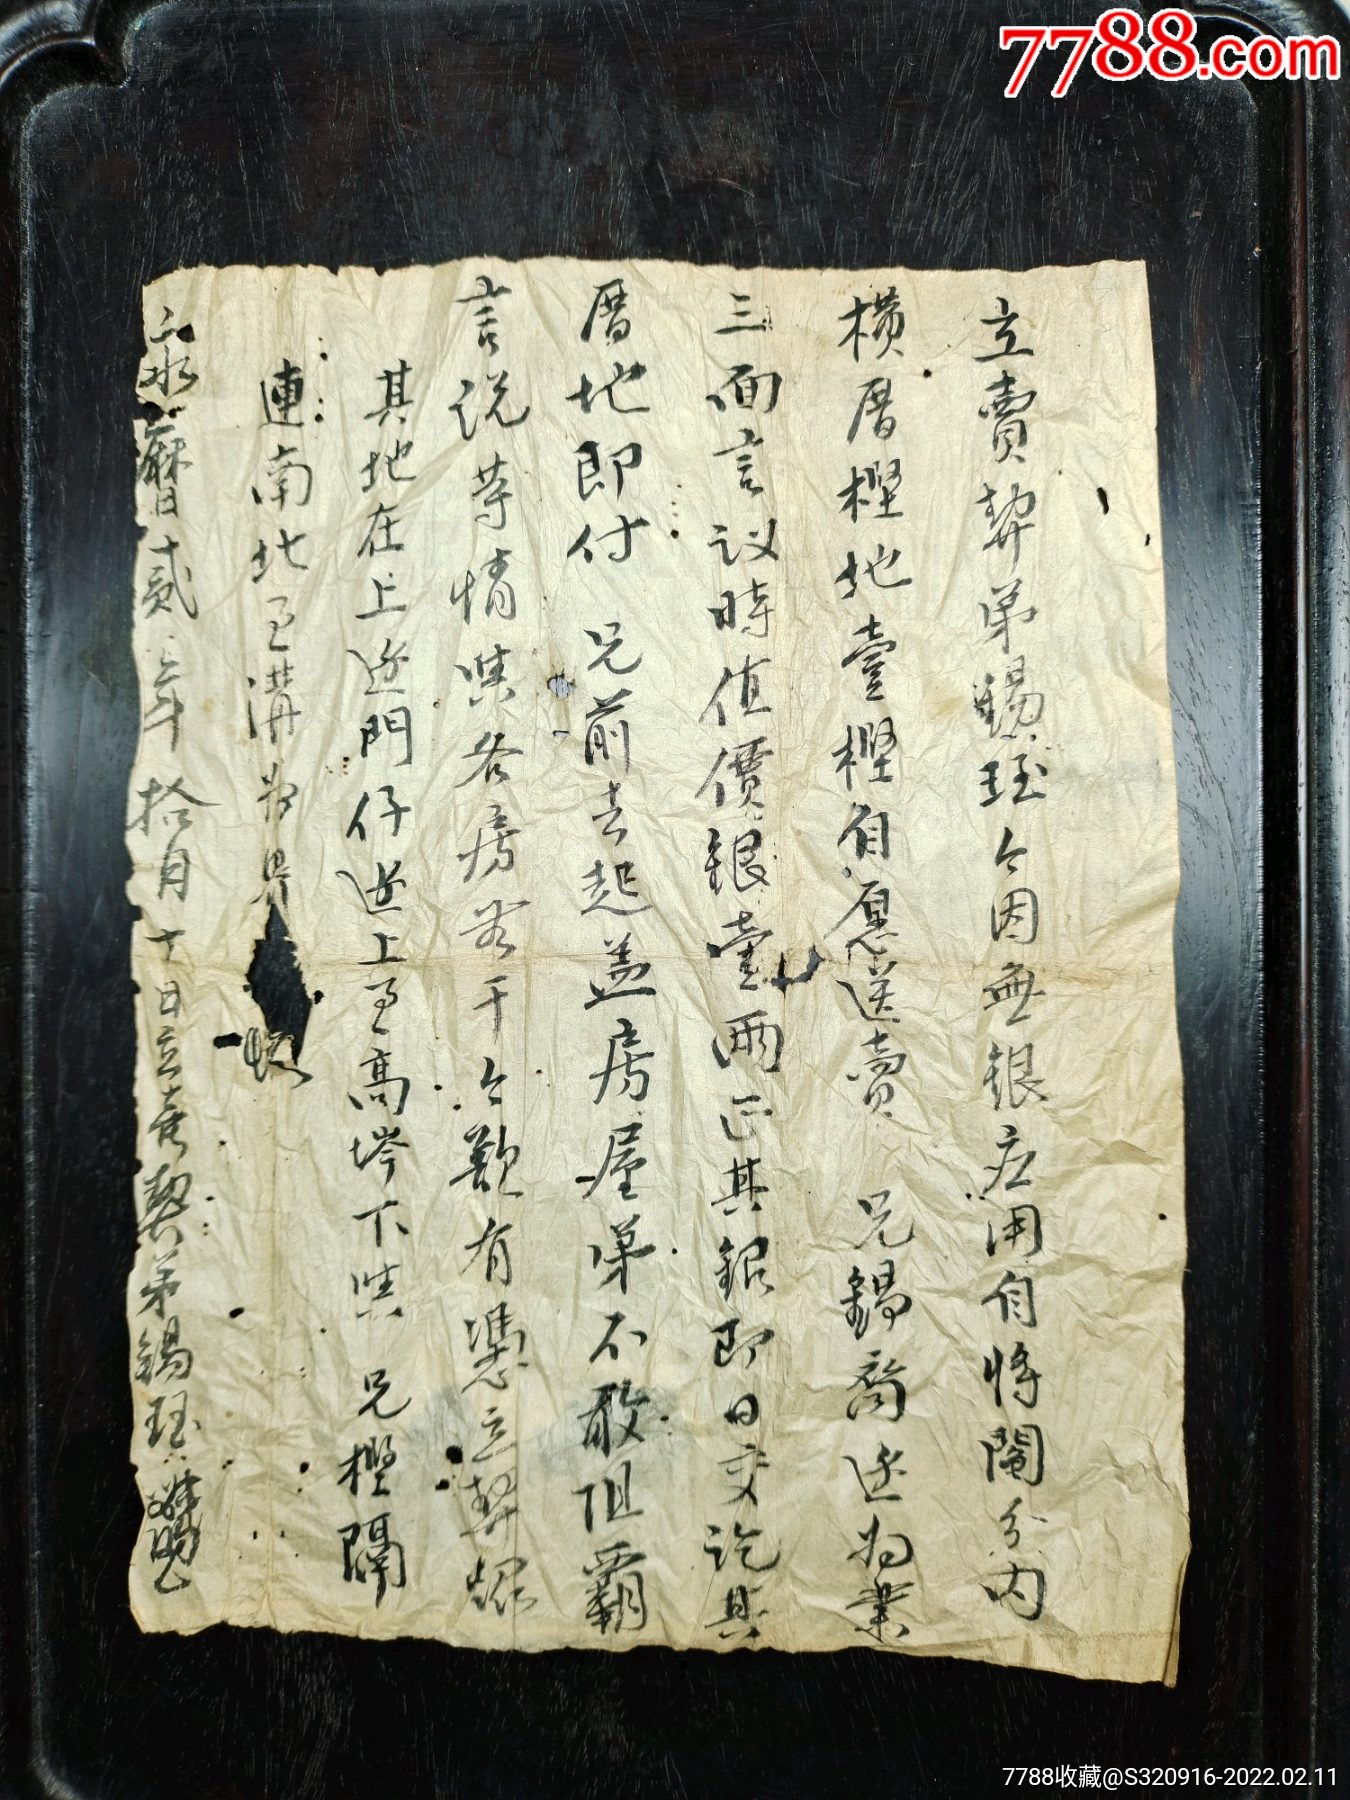 7788.com
立賣契弟錫珏今因無銀応用自将鬮分内
横厝樫地壹樫自愿送賣 兄錫喬述为業
三面言议時值價銀壹兩正其銀即日交訖其
厝地即付 兄前去起盖房屋弟不敢阻霸
言说等情 各房若干今 有憑立契
其地在上 門仔 上至高 下 兄樫隔
連南北至溝为界
永曆貳 年拾月十日立賣契弟錫珏
7788收藏@S320916-2022.02.11